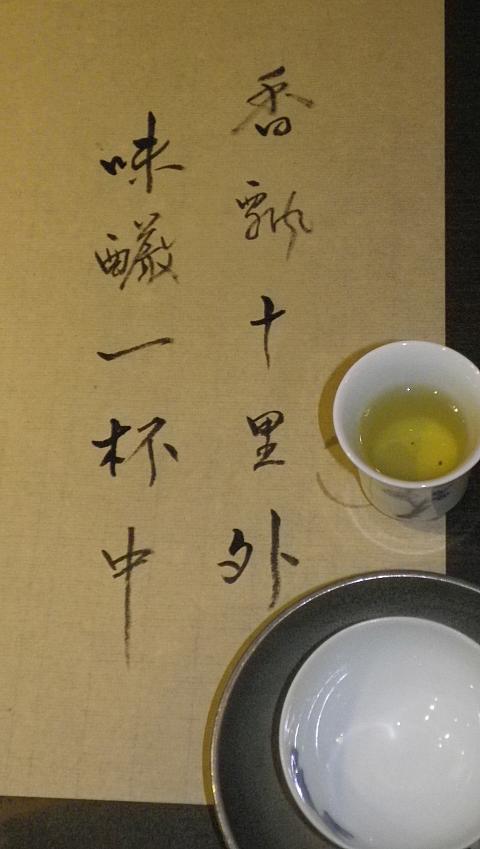 香飄十里外
味釅一杯中